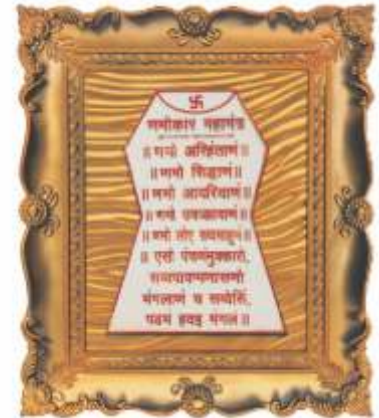 卐
णमोकार महामंत्र
॥ णमो अरिहंताणं ॥
॥ णमो सिद्धाणं ॥
॥ णमो आयरियाणं ॥
॥ णमो उवज्झायाणं ॥
॥ णमो लोए सव्वसाहूणं ॥
॥ एसो पंचणमुक्कारो,
सव्वपावप्पणासणो
मंगलाणं च सव्वेसिं,
पढमं हवइ मंगल ॥